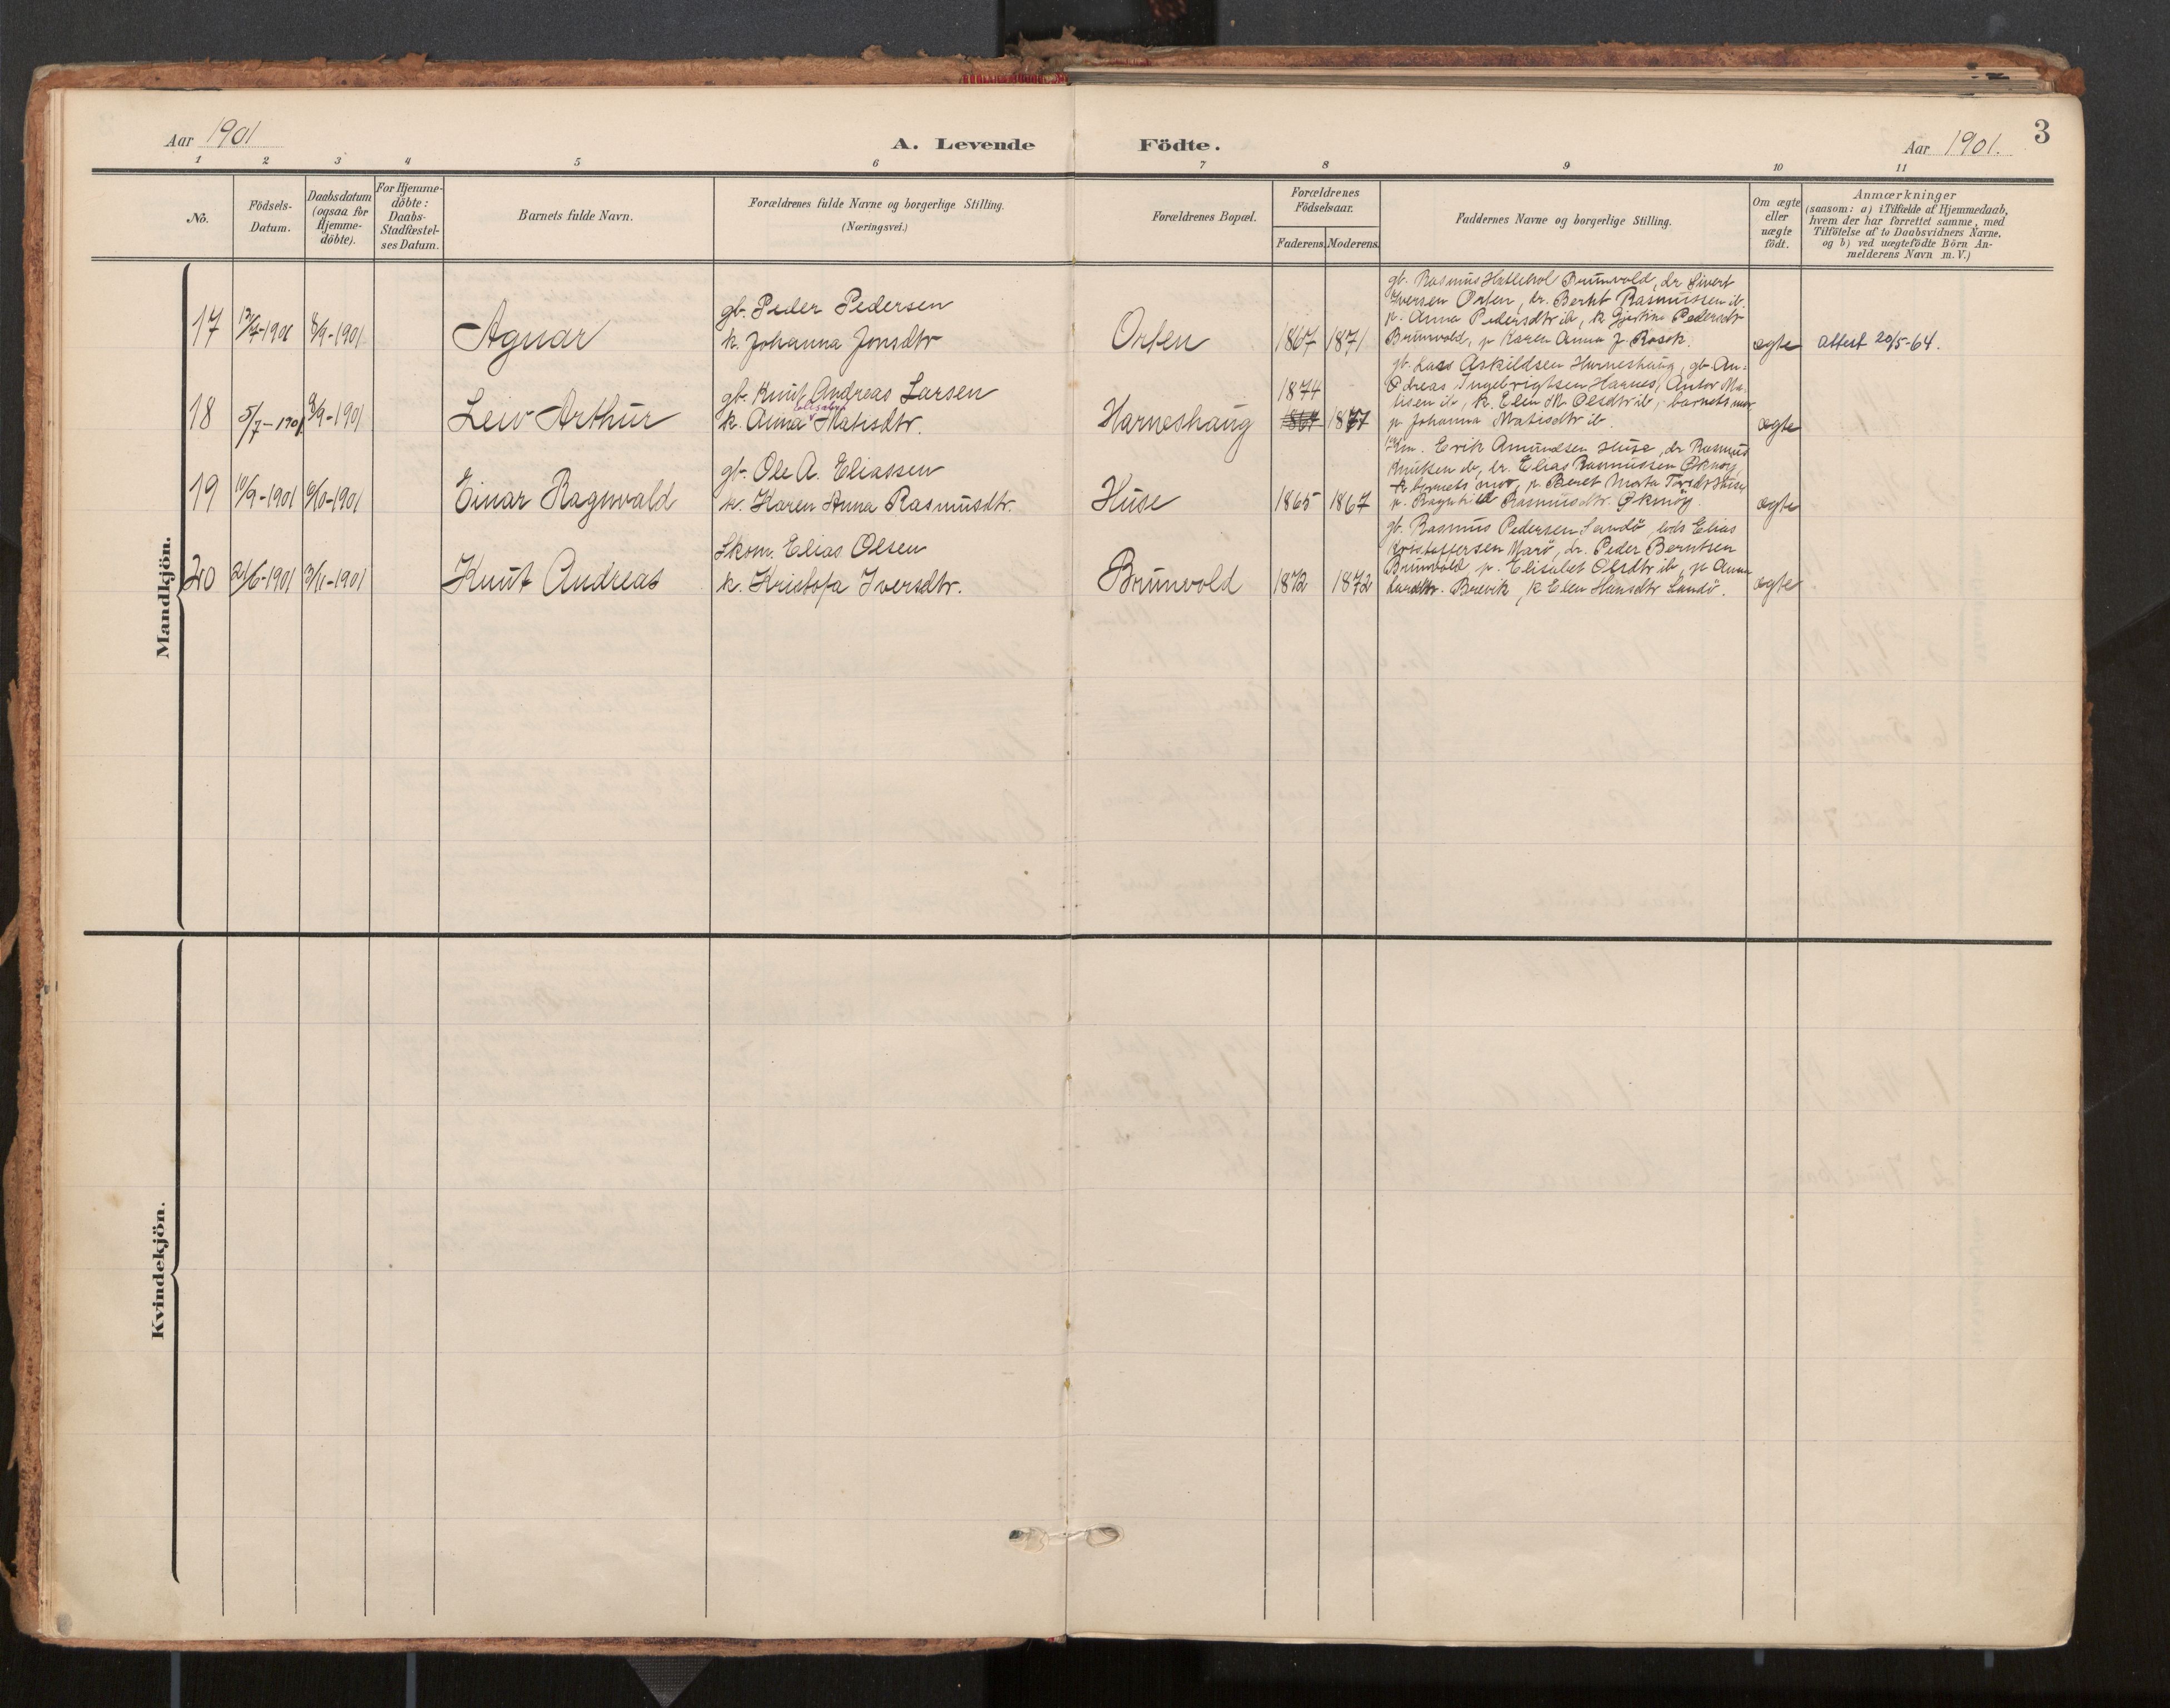 3
Aar 1901
A. Levende Födte.
Aar 1901.
1 2 3 4 5 6 7 8 9 10 11
No.
Födsels-Datum.
Daabsdatum (ogsaa for Hjemme-döbte).
For Hjemme-döbte: Daabs-Stadfæstel-ses Datum.
Barnets fulde Navn.
Forældrenes fulde Navne og borgerlige Stilling.
(Næringsvei.)
Forældrenes Bopæl.
Forældrenes Födselsaar.
Faderens. Moderens.
Faddernes Navne og borgerlige Stilling.
Om ægte eller uægte födt.
Anmærkninger
(saasom: a) i Tilfælde af Hjemmedaab,
hvem der har forrettet samme, med
Tilföielse af to Daabsvidners Navne,
og b) ved uægtefödte Börn An-
melderens Navn m. V.)
Mandkjön.
17 13/7-1901 8/9-1901 Agnar
gb. Peder Pedersen
k. Johanna Jonsdtr
Orten 1867 1871
gb. Rasmus Hatlebol Brunvold, dr Sivert
Iversen Orten, dr. Bernt Rasmussen ib.
p. Anna Pedersdtr ib, k Gjertine Pedersdtr
Brunvold, p Karen Anna J. Røsok.
ægte attest 20/5-64.
18 5/7-1901 8/9-1901 Leiv Arthur
gb. Knut Andreas Larsen
Elisabet
k. Anna Matisdtr.
Harneshaug 1874 1877
gb. Lars Askildsen Harneshaug, gb. An-
dreas Ingebrigtsen Harnes, Anton Ma-
tisen ib, k. Elen M Olsdtr ib, barnets mor,
p Johanna Matisdtr ib.
ægte
19 10/9-1901 6/10-1901 Einar Ragnvald
gb. Ole A. Eliassen
k. Karen Anna Rasmusdtr.
Huse 1865 1867
Km. Erik Amundsen Huse, dr Rasmus
Knutsen do, dr. Elias Rasmussen Øknøy,
k barnets mor, p Beret Marta Huse
p. Ragnhild Rasmusdtr. Øknöy.
ægte
20 21/6-1901 3/11-1901 Knut Andreas
Skom. Elias Olsen
k. Kristofa Iversdtr.
Brunvold 1872 1872
gb. Rasmus Pedersen Sandö, lods Elias
Kristoffersen Marö, dr. Peder Berntsen
Brunvold p. Elisabet Olsdtr ib, p Anna
Larsdtr. Brevik, k Elen Hansdtr Sandö.
ægte
Kvindekjön.